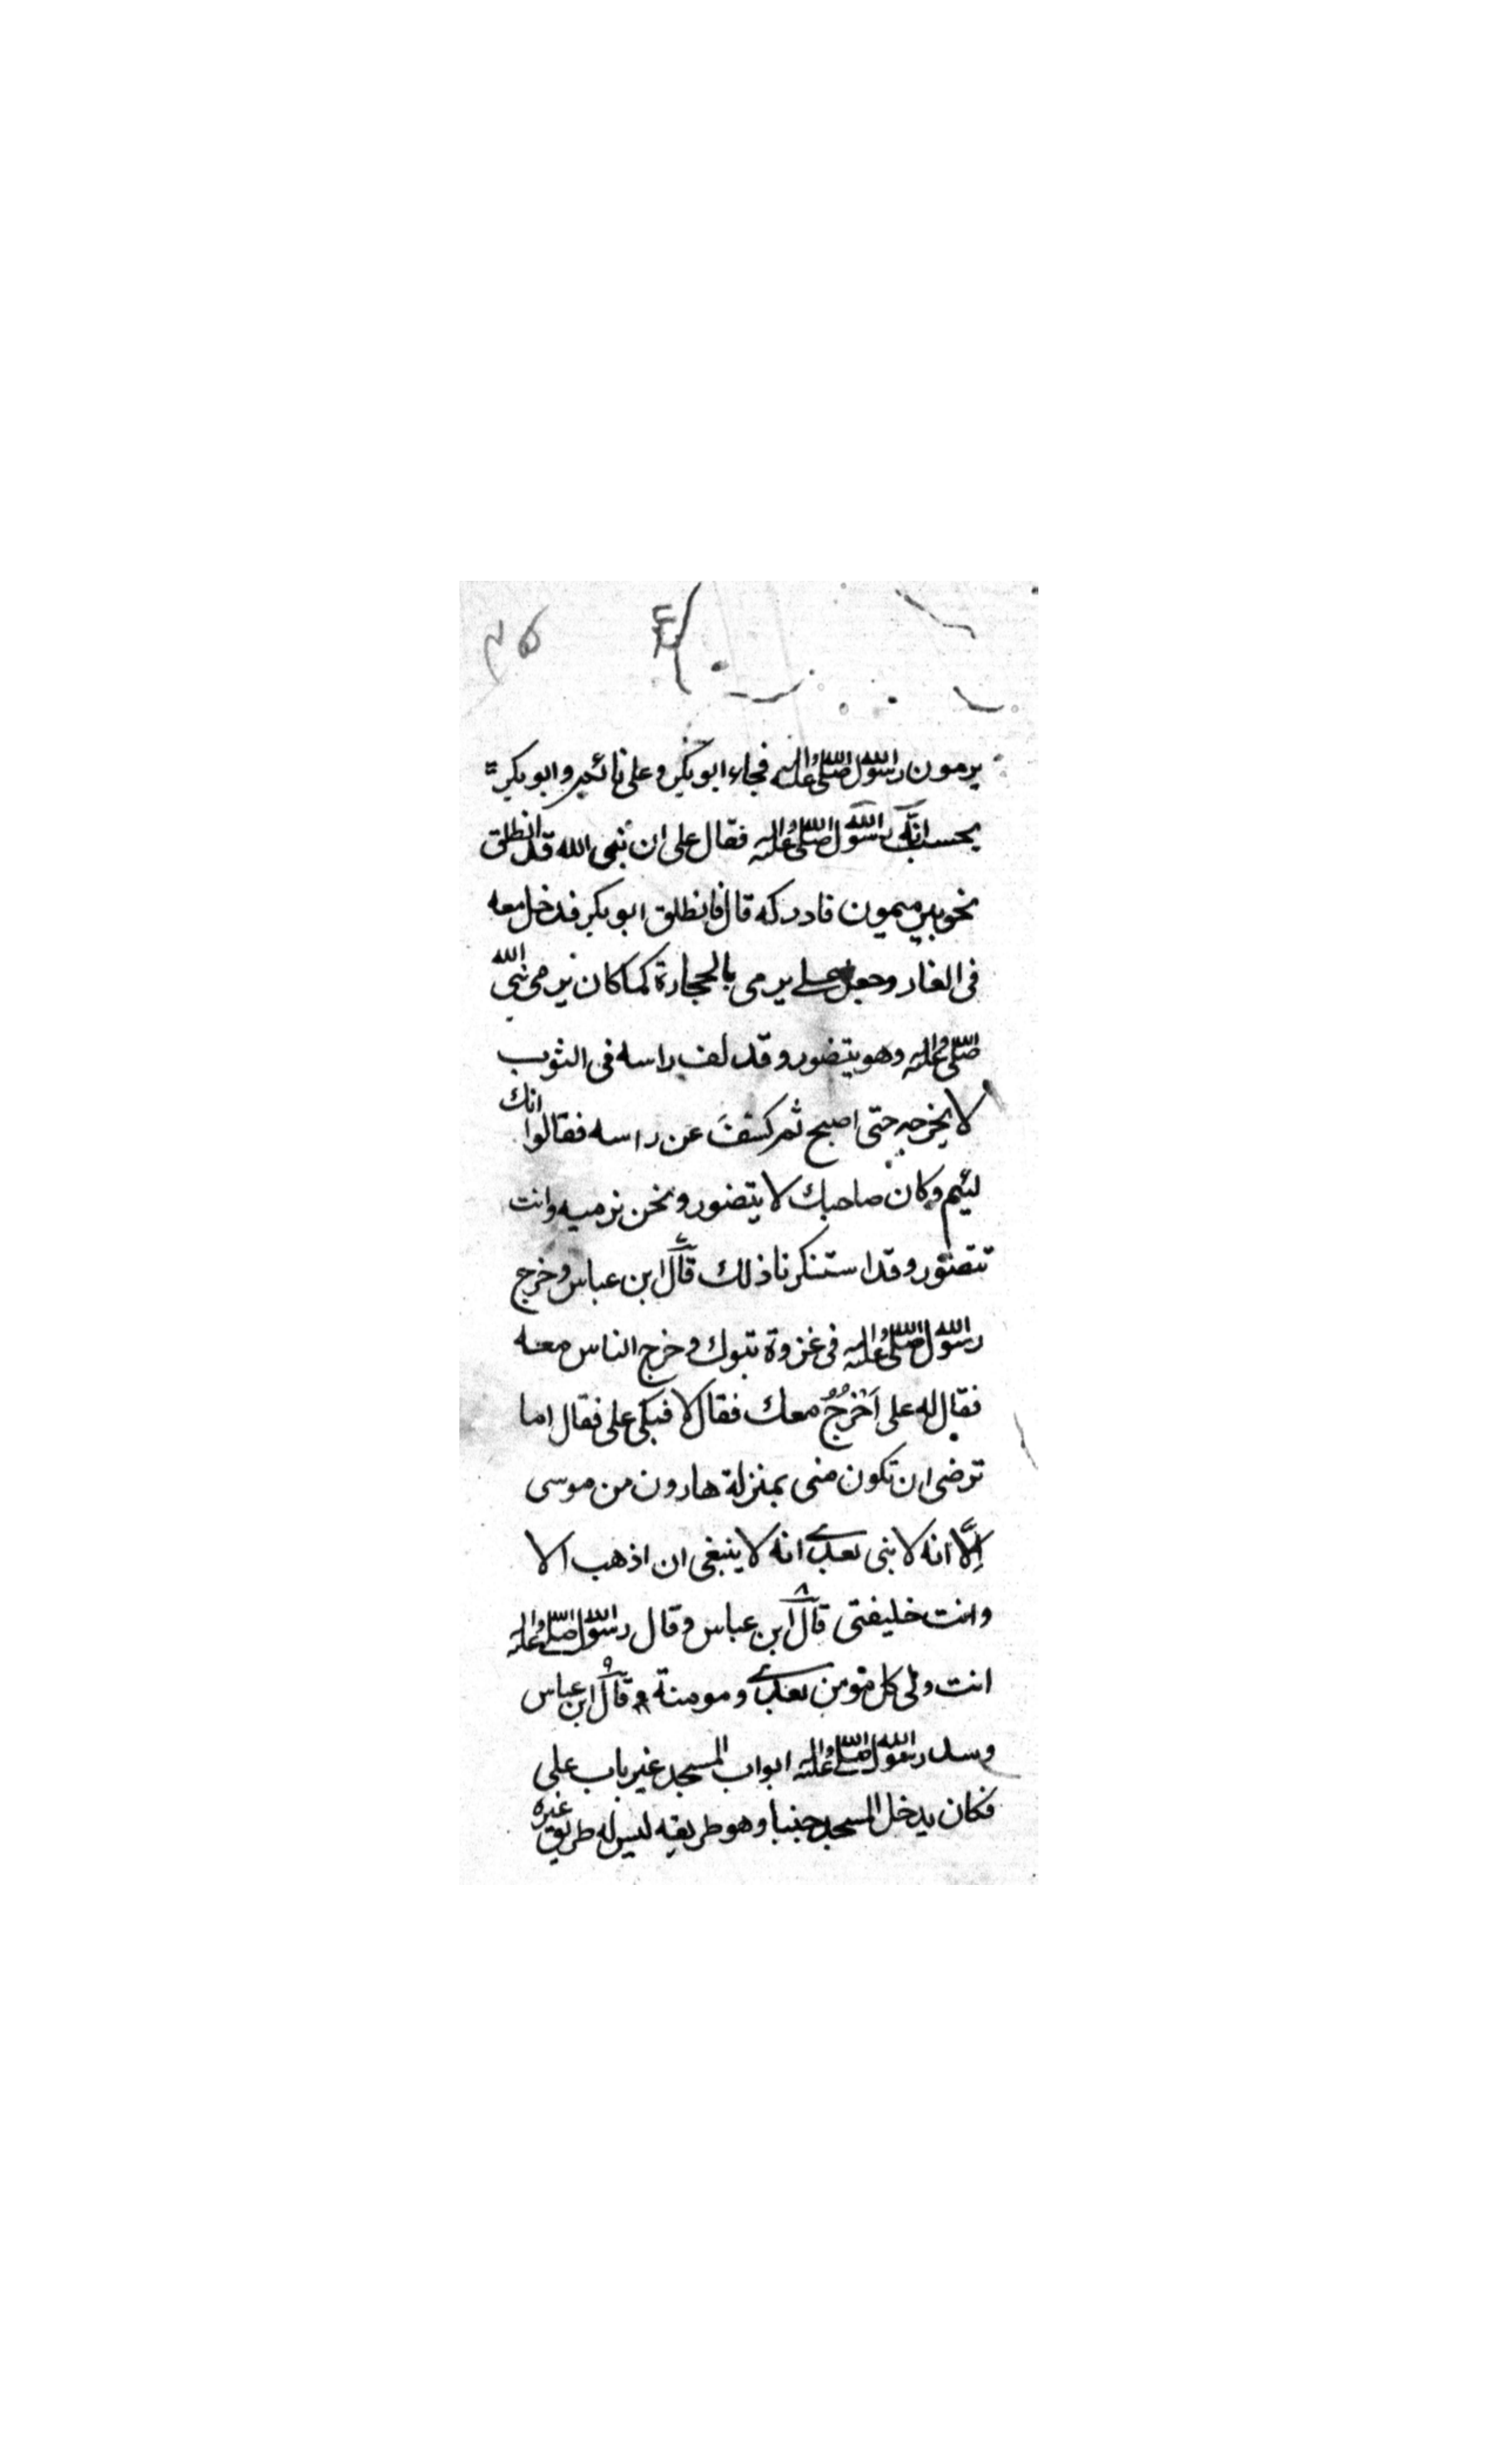 يرمون رسول الله صلى الله عليه واله فجاء ابو بكر وعلى نائم وابو بكر
يحسب انه رسول الله صلى الله عليه واله فقال على ان نبى الله قد انطلق
نحو بير ميمون فادركه قال فانطلق ابو بكر فدخل معه
فى الغار وجعل على يرمى بالحجارة كما كان يرمى نبى الله
صلى الله عليه واله وهو يتضور وقد لف راسه فى الثوب
لا يخرجه حتى اصبح ثم كشف عن راسه فقالوا انك
لئيم وكان صاحبك لا يتضور ونحن نرميه وانت
تتضور وقد استنكرنا ذلك ٧ قال ابن عباس وخرج
رسول الله صلى الله عليه واله فى غزوة تبوك وخرج الناس معه
فقال له على اَخْرُجُ معك فقال لا فبكى على فقال اما
ترضى ان تكون منى بمنزلة هارون من موسى
اِلَّا انه لا نبى بعدى انه لا ينبغى ان اذهب الا
وانت خليفتى ٨ قال ابن عباس وقال رسول الله صلى الله عليه واله
انت ولى كل مومن بعدى ومومنة ٩ وقال ابن عباس
وسد رسول الله صلى الله عليه واله ابواب المسجد غير باب على
فكان يدخل المسجد جنبا وهو طريقه ليس له طريق غيره